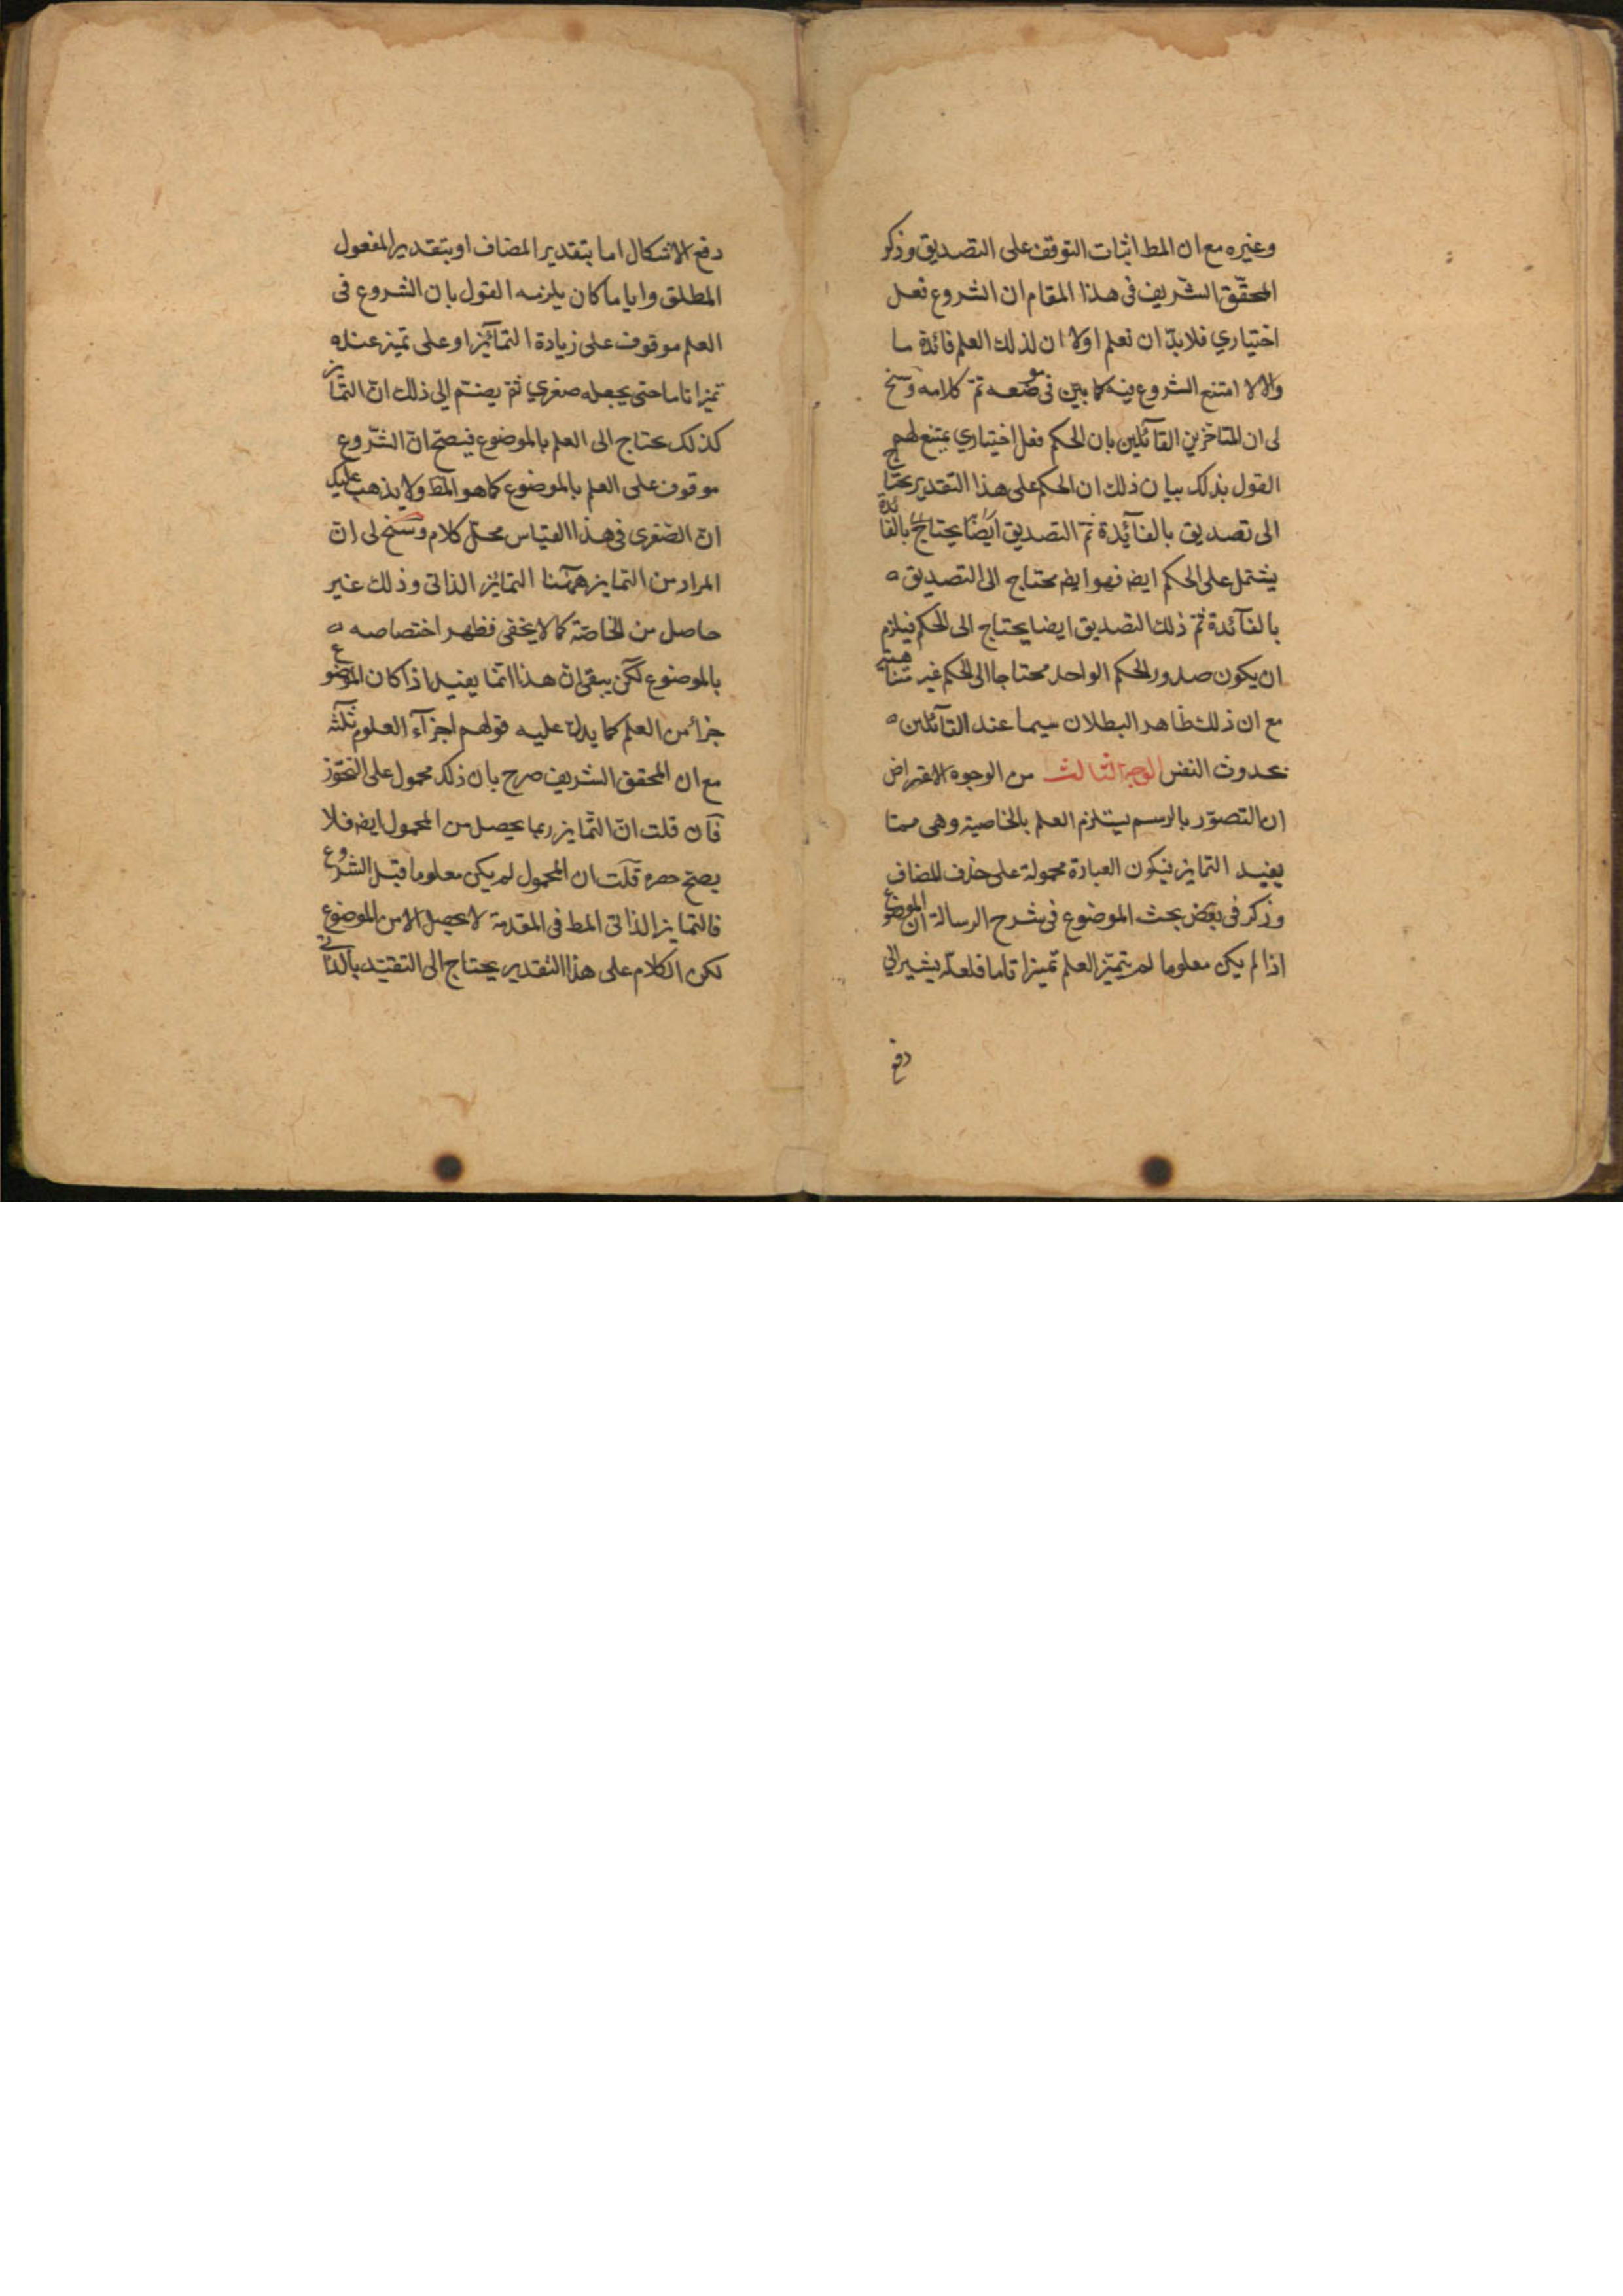 وغيره مع ان المط اثبات التوقف على التصديق وذكر
المحقّق الشّريف فى هذا المقام ان الشروع فعل
اختياري فلا بدّ ان نعلم اولا ان لذلك العلم فائدة ما
والا لا امتنع الشروع فيه كما بين فى موضعه تمّ كلامه وسنح
لى ان المتاخرين القآئلين بان الحكم فعل اختياري يمتنع لهم
القول بذلك بيان ذلك ان الحكم على هذا التقدير يحتاج
الى تصديق بالفآئدة ثمّ التصديق ايضا يحتاج بالفائدة
يشتمل على الحكم ايضه فهو ايضه محتاج الى التصديق
بالفآئدة ثمّ ذلك التصديق ايضا يحتاج الى الحكم فيلزم
ان يكون صدور الحكم الواحد محتاجا الى الحكم غير متناهية
مع ان ذلك ظاهر البطلان سيما عند القآئلين
بحدوث النفس الوجه الثالث من الوجوه الاعتراض
ان التصوّر بالرسم يستلزم العلم بالخاصية وهى ممتا
يفيد التمايز فيكون العبارة محمولة على حذف المضاف
وذكر فى بعض بحث الموضوع فى شرح الرسالة ان الموضوع
اذا لم يكن معلوما لم يتميّز العلم تميزا تاما فلعلّه يشير الى
دفع
دفع الاشكال اما بتقدير المضاف او بتقدير المفعول
المطلق وايا ما كان يلزمه القول بان الشروع فى
العلم موقوف على زيادة التمآئيز او على تميز عنده
تميزا تاما حتى يجعله صغري ثمّ يضمّ الى ذلك انّ التمايز
كذلك يحتاج الى العلم بالموضوع فيصحّ انّ الشّروع
موقوف على العلم بالموضوع كما هو المط ولا يذهب عليك
انّ الصّغرى فى هذا القياس محلّ كلام وسنح لى انّ
المراد من التمايز ههنا التمائز الذاتى وذلك غير
حاصل من الخاصّة كما لا يخفى فظهر اختصاصه
بالموضوع لكن يبقى انّ هذا انّما يفيد اذا كان الموضوع
جزأ من العلم كما يدلّ عليه قولهم اجزآء العلوم ثلثه
مع ان المحقق الشريف صرح بان ذلك محمول على التجوّز
فآن قلت انّ التّمايز ربما يحصل من المحمول ايضه فلا
يصحّ حصره قلت ان المحمول لم يكن معلوما قبل الشروع
فالتمايز الذاتى المط فى المقدمة لا يحصل الا من الموضوع
لكن الكلام على هذا التقدير يحتاج الى التقيّد بالذاتى